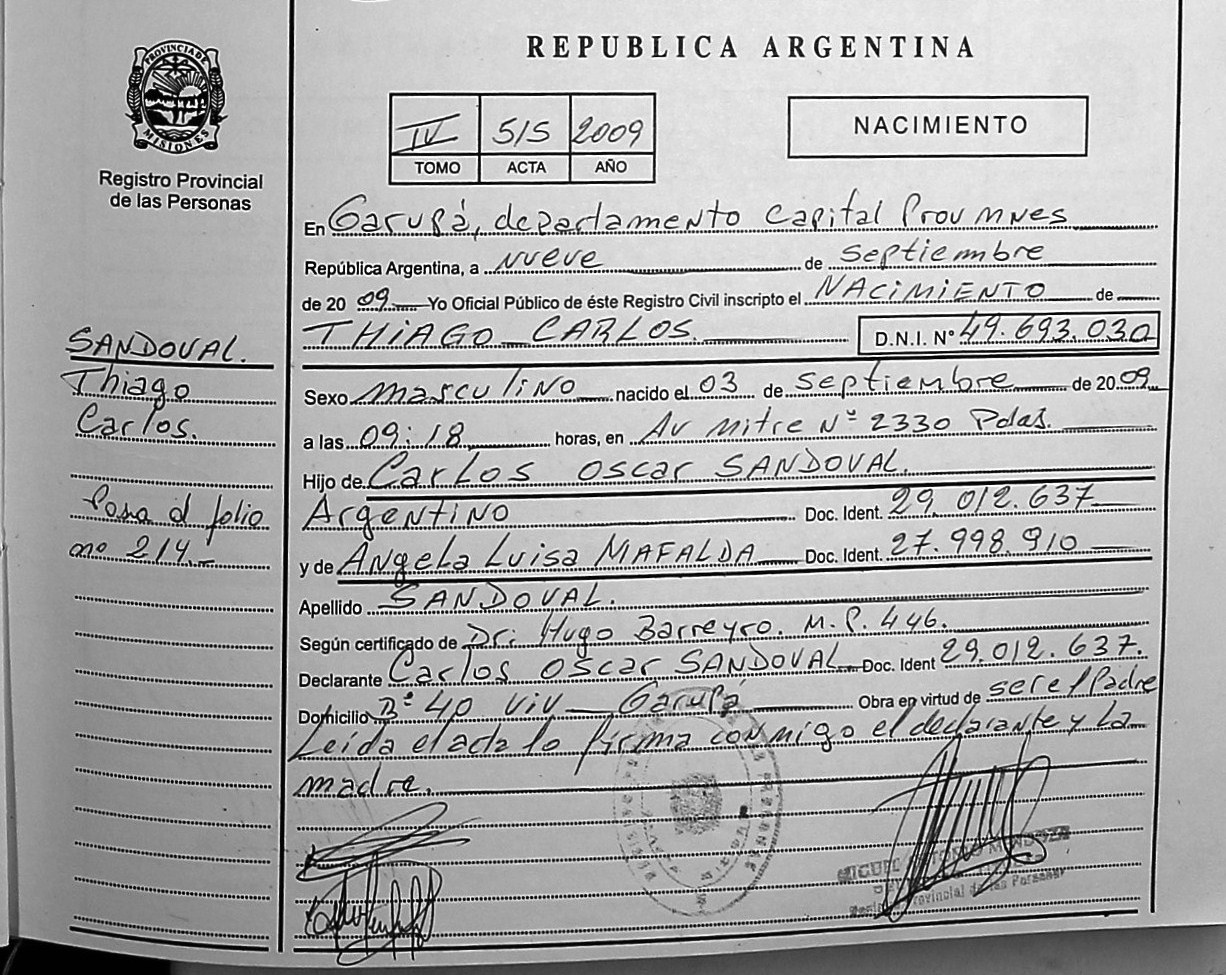 PROVINCIA DE
MISIONES
Registro Provincial
de las Personas
SANDOVAL.
Thiago
Carlos.
Pasa al folio
nº 214.-
REPUBLICA ARGENTINA
IV 515 2009
TOMO ACTA AÑO
NACIMIENTO
En Garupá, departamento Capital Prov Mnes
República Argentina, a nueve de septiembre
de 20 09 Yo Oficial Público de éste Registro Civil inscripto el NACIMIENTO de
THIAGO CARLOS. D.N.I. Nº 49.693.030
Sexo masculino nacido el 03 de septiembre de 20 09
a las 09:18 horas, en Av Mitre Nº 2330 Pdas.
Hijo de Carlos Oscar SANDOVAL.
Argentino Doc. Ident. 29.012.637
y de Angela Luisa MAFALDA Doc. Ident. 27.998.910
Apellido SANDOVAL.
Según certificado de Dr: Hugo Barreyro. M.P. 446.
Declarante Carlos Oscar SANDOVAL Doc. Ident 29.012.637.
Domicilio Bº 40 viv Garupá Obra en virtud de ser el Padre
Leída el acta lo firma conmigo el declarante y La
madre.
MIGUEL ANTONIO MENDOZA
Provincial de las Personas